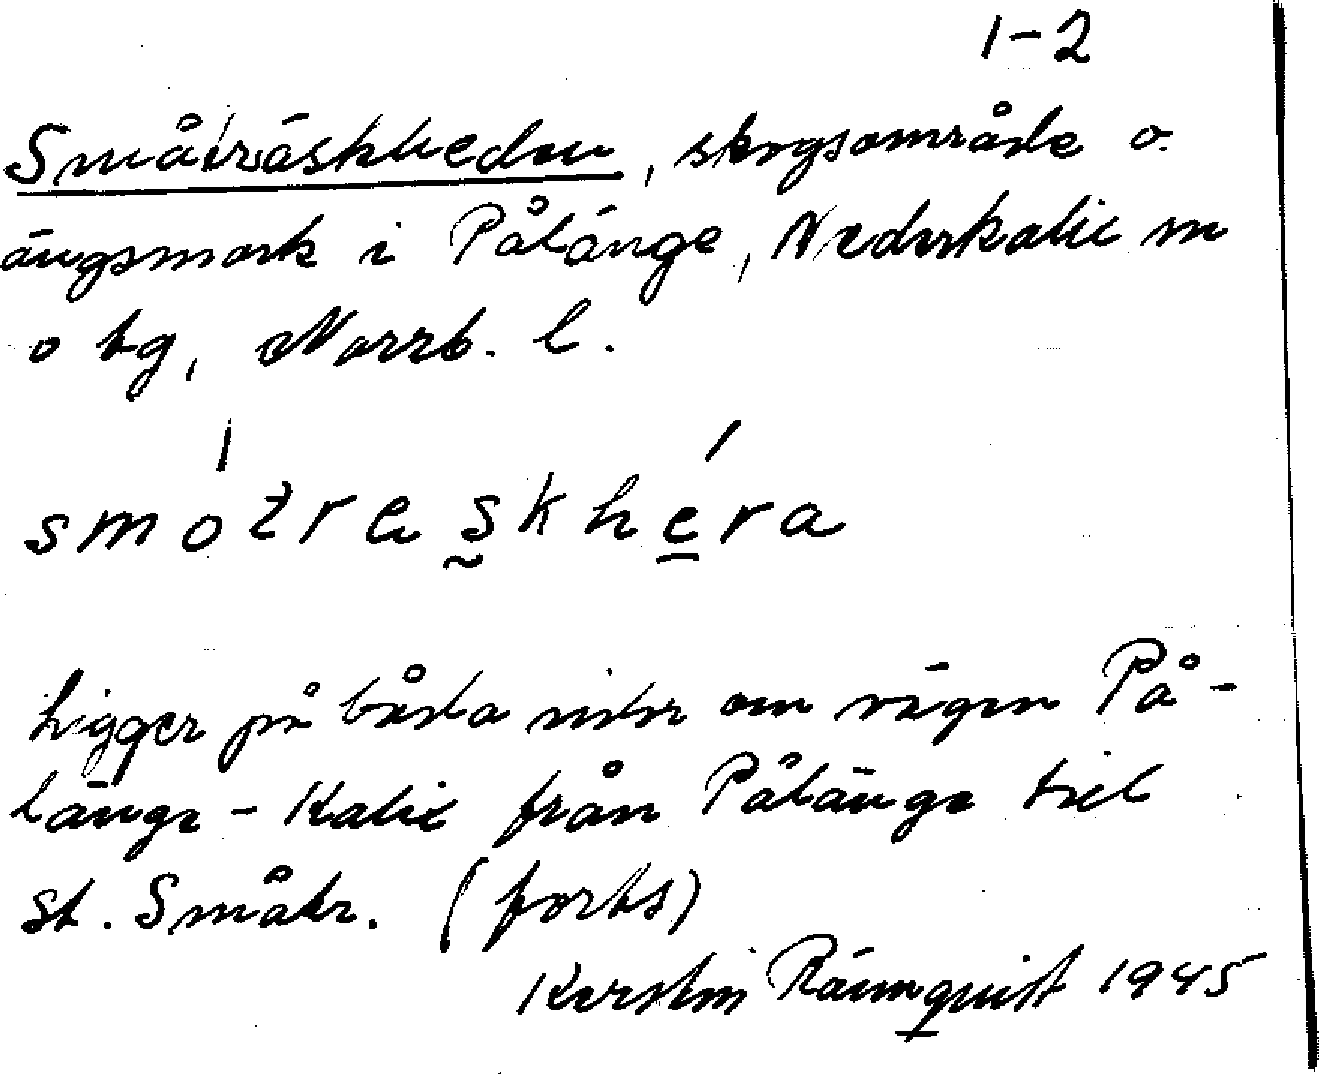 1-2
Småträskheden, skogsområde o.
ängsmark i Pålänge, Nederkalix sn
o tg, Norrb. l.
smótreskhéra
Ligger på båda sidor om vägen På-
länge - Kalix från Pålänge till
St. Småtr. (forts)
Kerstin Rönnquist 1945